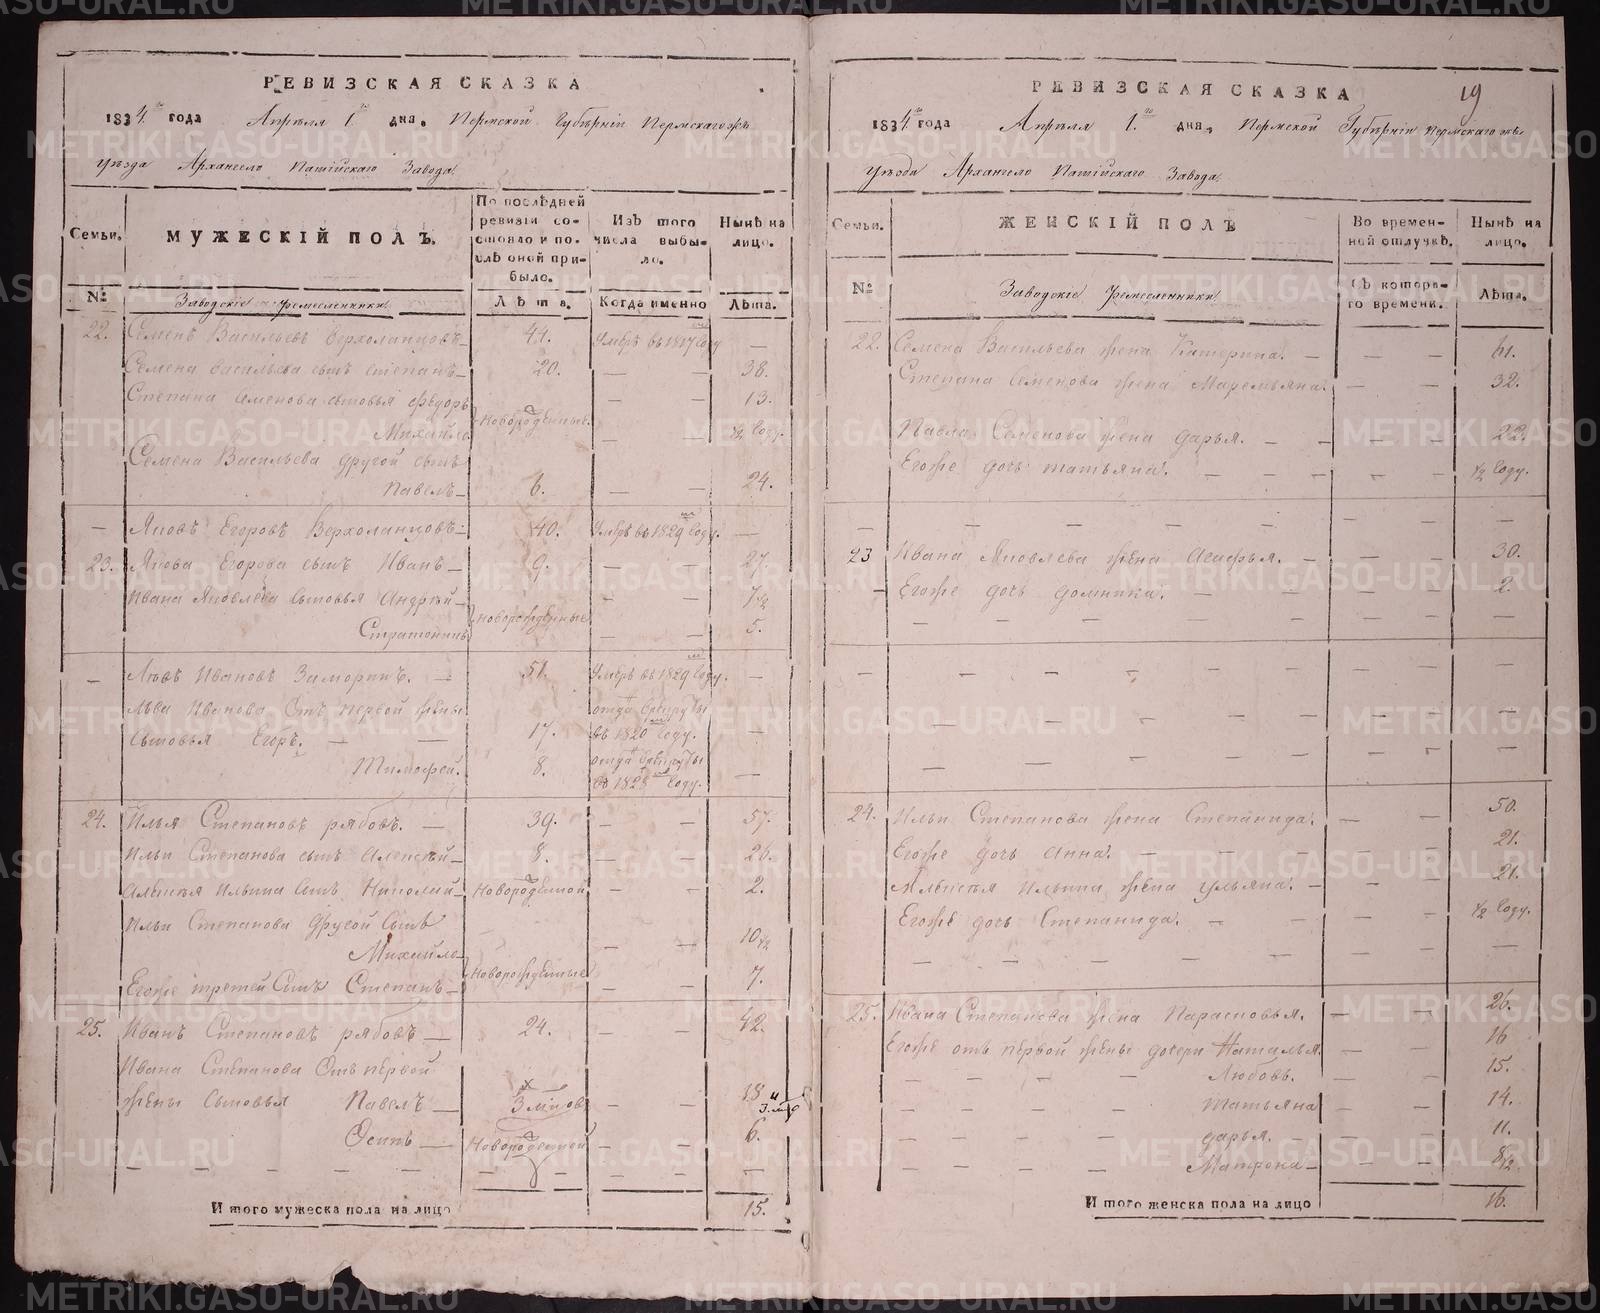 РЕВИЗСКАЯ СКАЗКА
1834го года Апреля 1го дня, Пермской Губѣрніи Пермскагожъ
уѣзда Архангело Пашійскаго Завода.
Семьи.
МУЖЕСКІЙ ПОЛЪ.
По послѣдней ревизіи состояло и послѣ оной прибыло.
Изъ того числа выбыло.
Нынѣ на лицо.
№
Заводскіе ремесленники.
Лѣта.
Когда именно
Лѣта.
22. Семенъ Васильевъ Верхоланцовъ 44. Умѣръ въ 1827 Году —
Семена Васильева сынъ Степанъ 20. — — 38.
Степана Семенова сыновья Федоръ Новорожденные — — 13.
Михайло — — ½ Году.
Семена Васильева другой сынъ
Павелъ 6. — — 24.
— Яковъ Егоровъ Верхоланцовъ 40. Умѣръ въ 1829 Году. —
23. Якова Егорова сынъ Иванъ 9. — — 27.
Ивана Яковлева сыновья Андрѣй Новорожденные — 7½
Стратонникъ — — 5.
— Львъ Ивановъ Заморинъ. — 51. Умѣръ въ 1829 Году. —
Льва Иванова Отъ первой жены отда Врекруты
сыновья Егоръ. — — 17. въ 1820 Году. —
Тимофей. 8. отда Врекруты въ 1828 Году. —
24. Илья Степановъ рябовъ. — 39. — — 57.
Ильи Степанова сынъ Алексѣй 8. — — 26.
Алексѣя Ильина Сынъ Николай Новорожденной — — 2.
Ильи Степанова другой Сынъ
Михайло — — 10½
Новорожденные
Егоже третей Сынъ Степанъ — — 7.
25. Иванъ Степановъ рябовъ — 24. — — 42.
Ивана Степанова Отъ первой
жены Сыновья Павелъ — 3 мѣцов — — 18 и 3. мѣс
Осипъ — Новорожденной — — 6.
И того мужеска пола на лицо 15.
РЕВИЗСКАЯ СКАЗКА 19
1834го года Апрѣля 1го дня, Пермской Губѣрніи Пермскагожъ
уѣзда Архангело Пашійскаго Завода.
Семьи.
ЖЕНСКІЙ ПОЛЪ
Во временной отлучкѣ.
Нынѣ на лицо.
№
Заводскіе ремесленники.
Съ котораго времени.
Лѣта.
22. Семена Васильева жена Катерина. — — — 61.
Степана Семенова жена Маремьяна. — — 32.
Павла Семенова жена дарья. — — — — 22.
Егоже дочь татьяна. — — — — ½ Году.
23 Ивана Яковлева жена Агафья. — — — 30.
Егоже дочь домника. — — — 2.
24. Ильи Степанова жена Степанида. — — 50.
Егоже дочь Анна. — — — — 21.
Алексѣя Ильина жена ульяна. — — — 21.
Егоже дочь Степанида. — — — ½ Году.
25. Ивана Степанова жена Парасковья. — — 26.
Егоже отъ первой жены дочери Наталья — — 16
Любовь. — — 15.
татьяна — — 14.
дарья. — — 11.
Матрона — — 8½
И того женска пола на лицо 16.